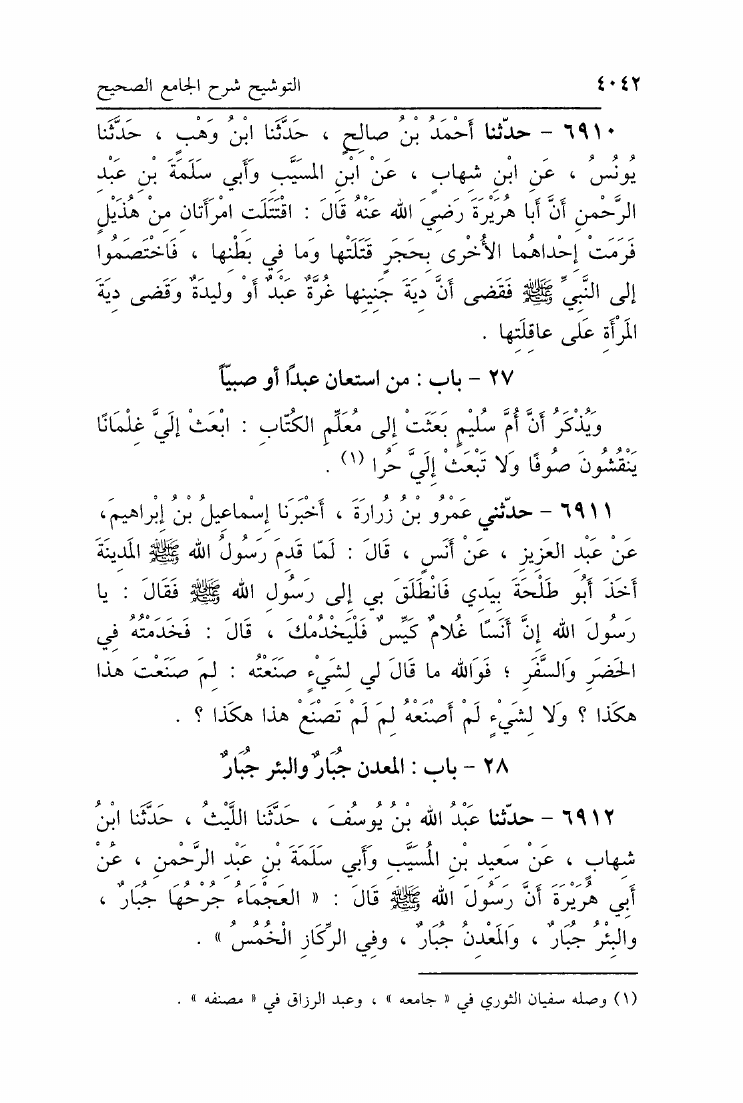 ٤٠٤٢ التوشيح شرح الجامع الصحيح
٦٩١٠ – حدّثنا أَحْمَدُ بْنُ صالحٍ ، حَدَّثَنا ابْنُ وَهْبٍ ، حَدَّثَنا
يُونُسُ ، عَنِ ابْنِ شِهابٍ ، عَنْ ابْنِ المسَيَّبِ وَأَبي سَلَمَةَ بْنِ عَبْدِ
الرَّحْمنِ أَنَّ أَبا هُرَيْرَةَ رَضِيَ الله عَنْهُ قَالَ : اقْتَتَلَت امْرَأَتان مِنْ هُذَيْلٍ
فَرَمَتْ إِحْداهُما الأُخْرى بِحَجَرٍ قَتَلَتْها وَما فِي بَطْنِها ، فَاخْتَصَمُوا
إلى النَّبِيِّ ﷺ فَقَضى أَنَّ دِيَةَ جَنِينِها غُرَّةٌ عَبْدٌ أَوْ وليدَةٌ وَقَضى دِيَةَ
المَرْأَةِ عَلى عاقِلَتِها .
٢٧ – باب : من استعان عبدًا أو صبيّاً
وَيُذْكَرُ أَنَّ أُمَّ سُلَيْمٍ بَعَثَتْ إلى مُعَلِّمِ الكُتّابِ : ابْعَثْ إلَيَّ غِلْمَانًا
يَنْقُشُونَ صُوفًا وَلا تَبْعَثْ إلَيَّ حُرا (١) .
٦٩١١ – حدّثني عَمْرُو بْنُ زُرارَةَ ، أَخْبَرَنا إسْماعِيلُ بْنُ إبْراهيمَ،
عَنْ عَبْدِ العَزيزِ ، عَنْ أَنَسٍ ، قَالَ : لَمّا قَدِمَ رَسُولُ الله ﷺ المَدينَةَ
أَخَذَ أَبُو طَلْحَةَ بِيَدِي فَانْطَلَقَ بي إلى رَسُولِ الله ﷺ فَقَالَ : يا
رَسُولَ الله إنَّ أَنَسًا غُلامٌ كَيِّسٌ فَلْيَخْدُمْكَ ، قَالَ : فَخَدَمْتُهُ فِي
الحَضَرِ وَالسَّفَرِ ؛ فَوَالله ما قَالَ لي لِشَيْءٍ صَنَعْتُه : لِمَ صَنَعْتَ هذا
هكَذا ؟ وَلا لِشَيْءٍ لَمْ أَصْنَعْهُ لِمَ لَمْ تَصْنَعْ هذا هكَذا ؟ .
٢٨ – باب : المعدن جُبَارٌ والبئر جُبَارٌ
٦٩١٢ – حدّثنا عَبْدُ الله بْنُ يُوسُفَ ، حَدَّثَنا اللَّيْثُ ، حَدَّثَنا ابْنُ
شِهابٍ ، عَنْ سَعِيدِ بْنِ المُسَيَّبِ وَأَبي سَلَمَةَ بْنِ عَبْدِ الرَّحْمنِ ، عَنْ
أَبي هُرَيْرَةَ أَنَّ رَسُولَ الله ﷺ قَالَ : « العَجْماءُ جُرْحُهَا جُبَارٌ ،
والبِئْرُ جُبَارٌ ، وَالمَعْدِنُ جُبَارٌ ، وفي الرِّكَازِ الْخُمُسُ » .
(١) وصله سفيان الثوري في « جامعه » ، وعبد الرزاق في « مصنفه » .